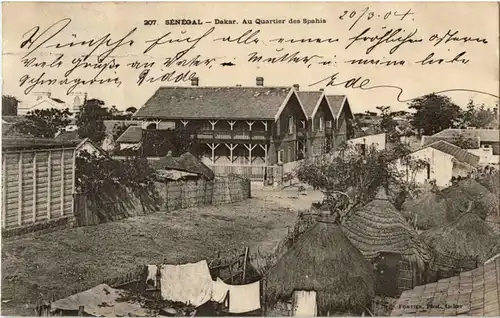 207. SÉNÉGAL — Dakar. Au Quartier des Spahis
20/3.04.
Wünsche euch allen einen fröhlichen Ostern
Viele Grüße an Vater Mutter und meine liebe
Schwägerin
Fortier, Phot., Dakar